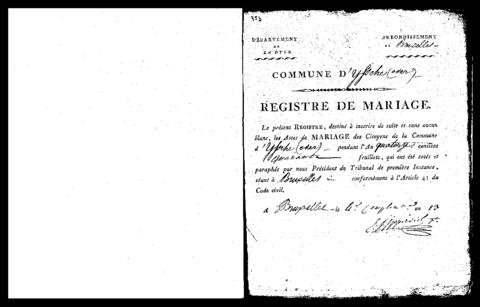 DÉPARTEMENT
DE
LA DYLE
ARRONDISSEMENT
de Bruxelles
COMMUNE D'Yssche (over)
REGISTRE DE MARIAGE.
Le présent REGISTRE, destiné à inscrire de suite et sans aucun
blanc, les Actes de MARIAGE des Citoyens de la Commune
d'Yssche (over) pendant l'An quatorze contient
feuillets, qui ont été cotés et
paraphés par nous Président du Tribunal de première Instance,
séant à Bruxelles conformément à l'Article 41 du
Code civil.
à Bruxelles le 13